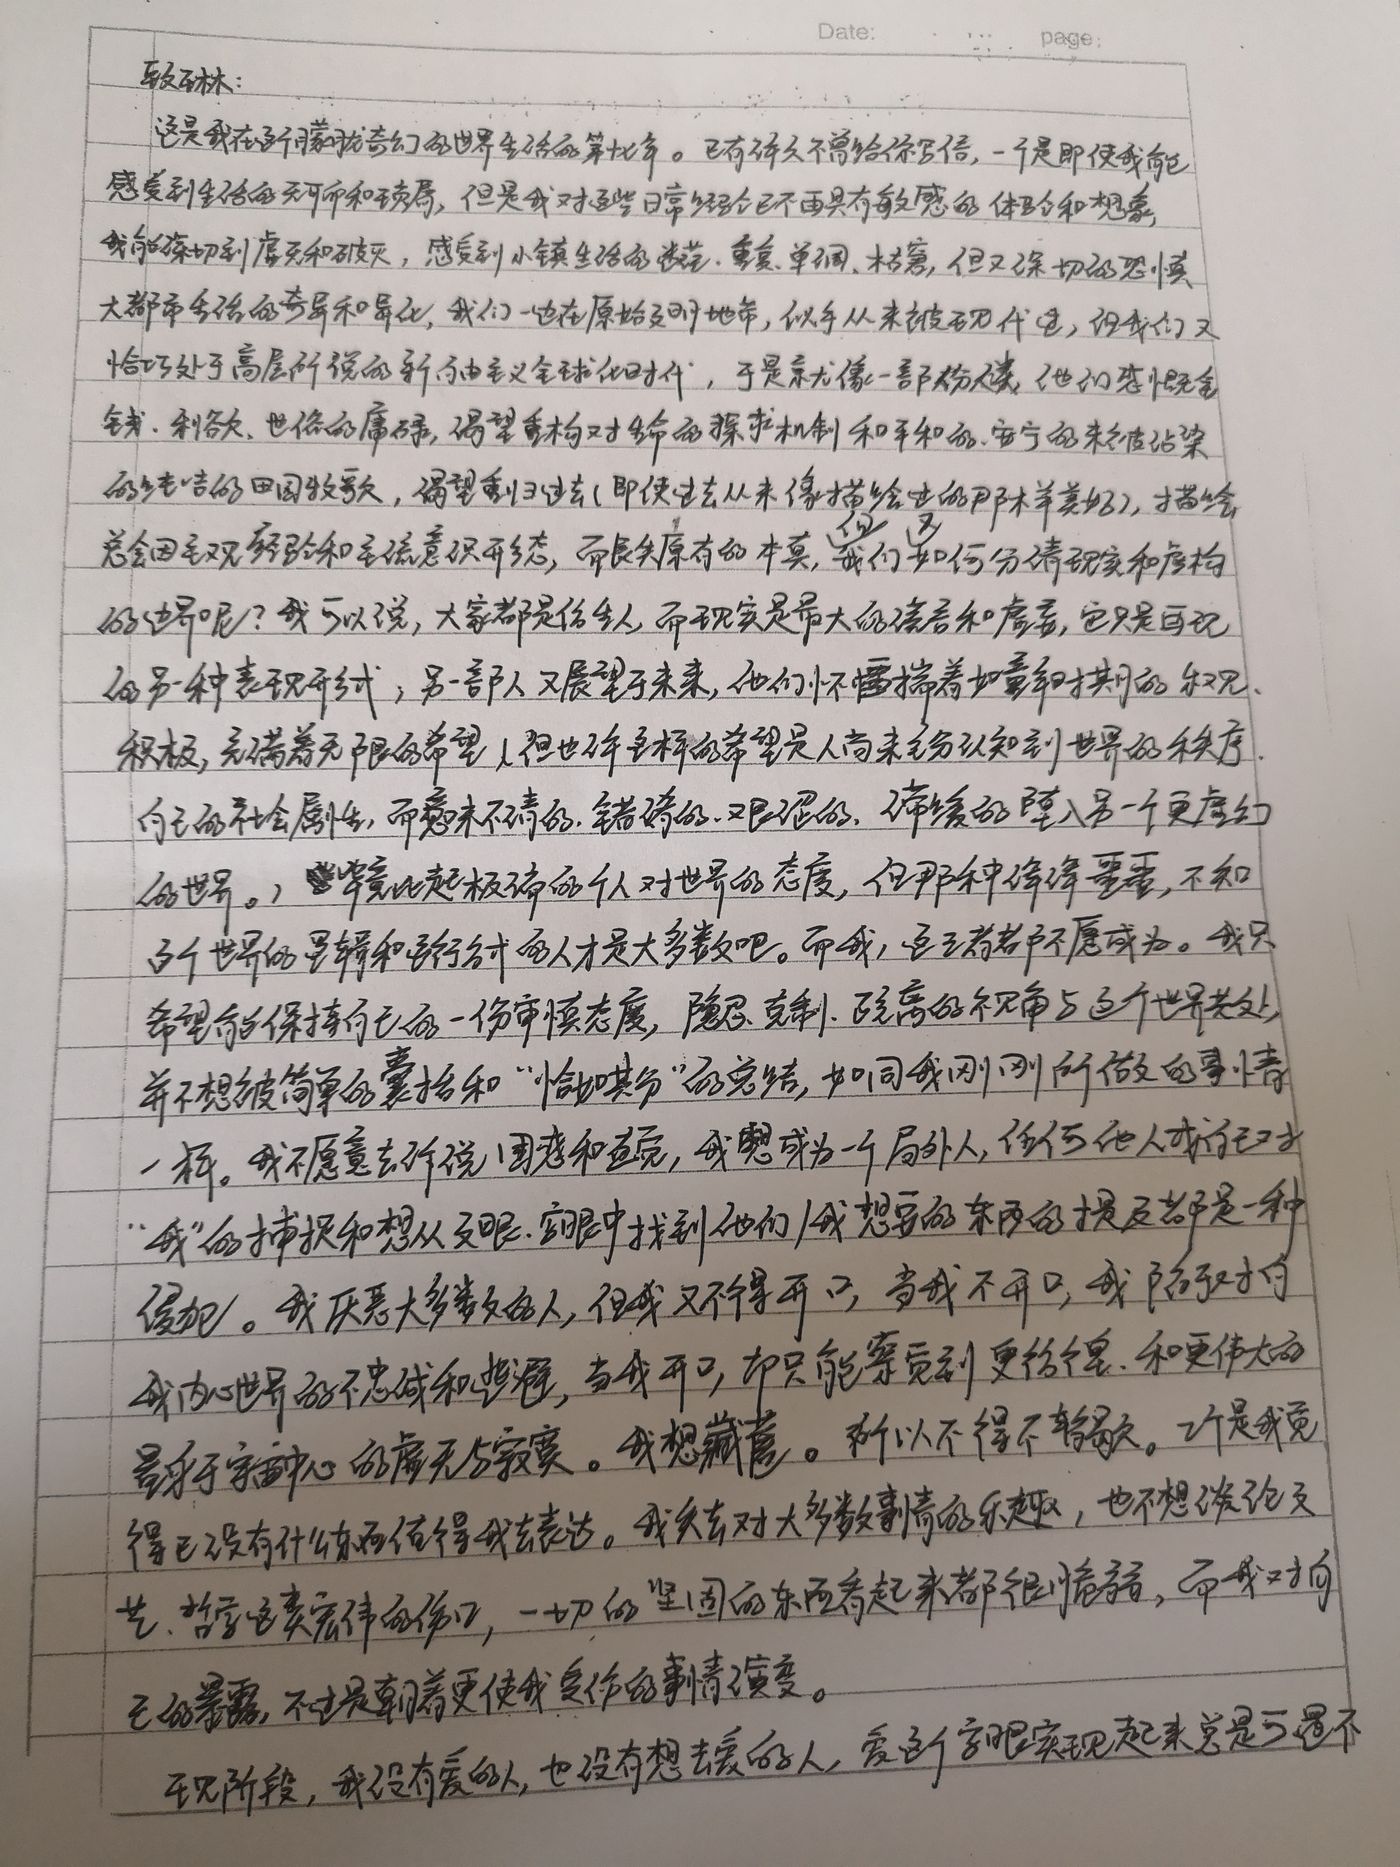 Date: page:
这是我在这个朦胧奇幻的世界生活的第十七年。已有许久不曾给你写信，一个是即使我能
感受到生活的无聊和琐屑，但是我对这些日常经验已不再具有敏感的体验和想象，
我能深切到虚无和破灭，感受到小镇生活的迷茫、重复、单调、枯窘，但又深切的恐惧
大都市生活的奇异和异化，我们一边在原始文明地带，似乎从未被现代过，但我们又
恰巧处于高层所说的新自由主义全球化时代，于是就尤像一部份人，他们恐惧金
钱、利欲、世俗的庸碌，渴望重构对生命的探求机制和平和的、安宁的未被沾染
的纯洁的田园牧歌，渴望重归过去（即使过去从未像描绘过的那样美好），描绘
总会因主观经验和主流意识形态，而丧失原有的本真，但我们又如何分清现实和虚构
的边界呢？我可以说，大家都是伤生人，而现实是最大的谎言和虚妄，它只是再现
的另一种表现形式；另一部人又展望于未来，他们怀揣着如童年时期的乐观、
积极，充满着无限的希望（但也许这样的希望是人尚未充分认知到世界的秩序、
自己的社会属性，而愈来不清的、错婍的、艰涩的、滞缓的堕入另一个更虚幻
的世界。）毕竟比起极端的个人对世界的态度，但那种浑浑噩噩，不知
这个世界的逻辑和运行方式的人才是大多数吧。而我，这三者都不愿成为。我只
希望能保持自己的一份审慎态度，隐忍、克制、疏离的视角与这个世界共处，
并不想被简单的囊括和“恰如其分”的总结，如同我刚刚所做的事情
一样。我不愿意去诉说困惑和直觉，我想成为一个局外人，任何他人或自己对
“我”的捕捉和想从文眼、字眼中找到他们/我想要的东西的揣度都是一种
侵犯。我厌恶大多数的人，但我又不得开口，当我不开口，我陷于对自
我内心世界的不忠诚和逃避，当我开口，却只能察觉到更彷徨、和更伟大的
置身于宇宙中心的虚无与寂寞。我想藏匿。所以不得不暂歇。二个是我觉
得已没有什么东西值得我去表达。我失去对大多数事情的乐趣，也不想谈论文
艺、哲学这类宏伟的伤口，一切的“坚固的东西看起来都很脆弱，而我对自
己的暴露，不过是朝着更使我受伤的事情演变。
现阶段，我没有爱的人，也没有想去爱的人，爱这个字眼实现起来总是可遇不